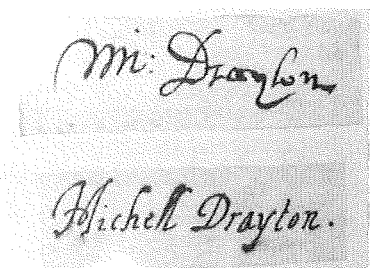 Mi: Drayton
Michell Drayton.